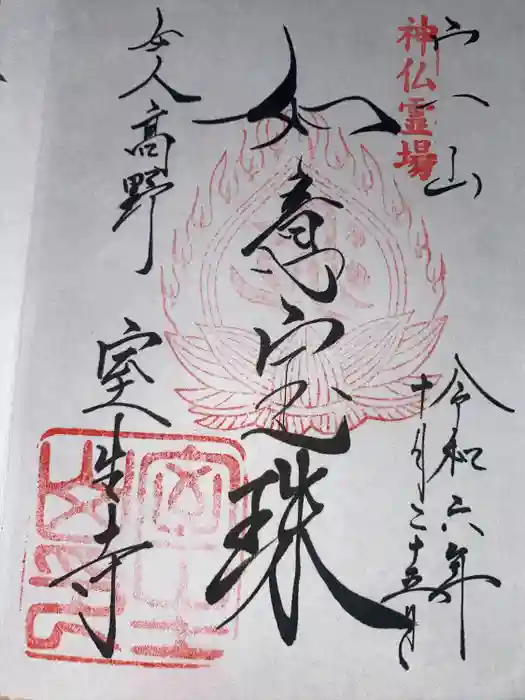 宀一山
神仏霊場
令和六年
十月二十五日
如意宝珠
女人高野
室生寺